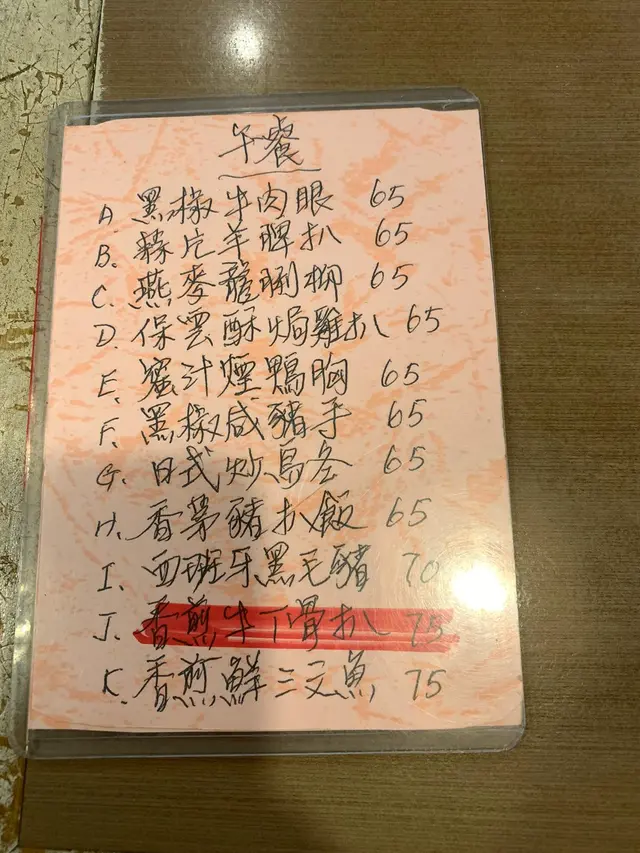 午餐
A. 黑椒牛肉眼 65
B. 蒜片羊脾扒 65
C. 燕麥龍脷柳 65
D. 保雲酥焗雞扒 65
E. 蜜汁煙鴨胸 65
F. 黑椒咸豬手 65
G. 日式炒烏冬 65
H. 香茅豬扒飯 65
I. 西班牙黑毛豬 70
J. 香煎牛丁骨扒 75
K. 香煎鮮三文魚 75